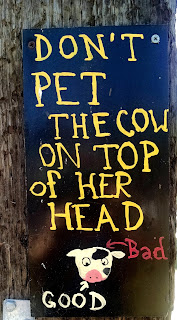 DON'T
PET
THE COW
ON TOP
of HER
HEAD
Bad
GOOD